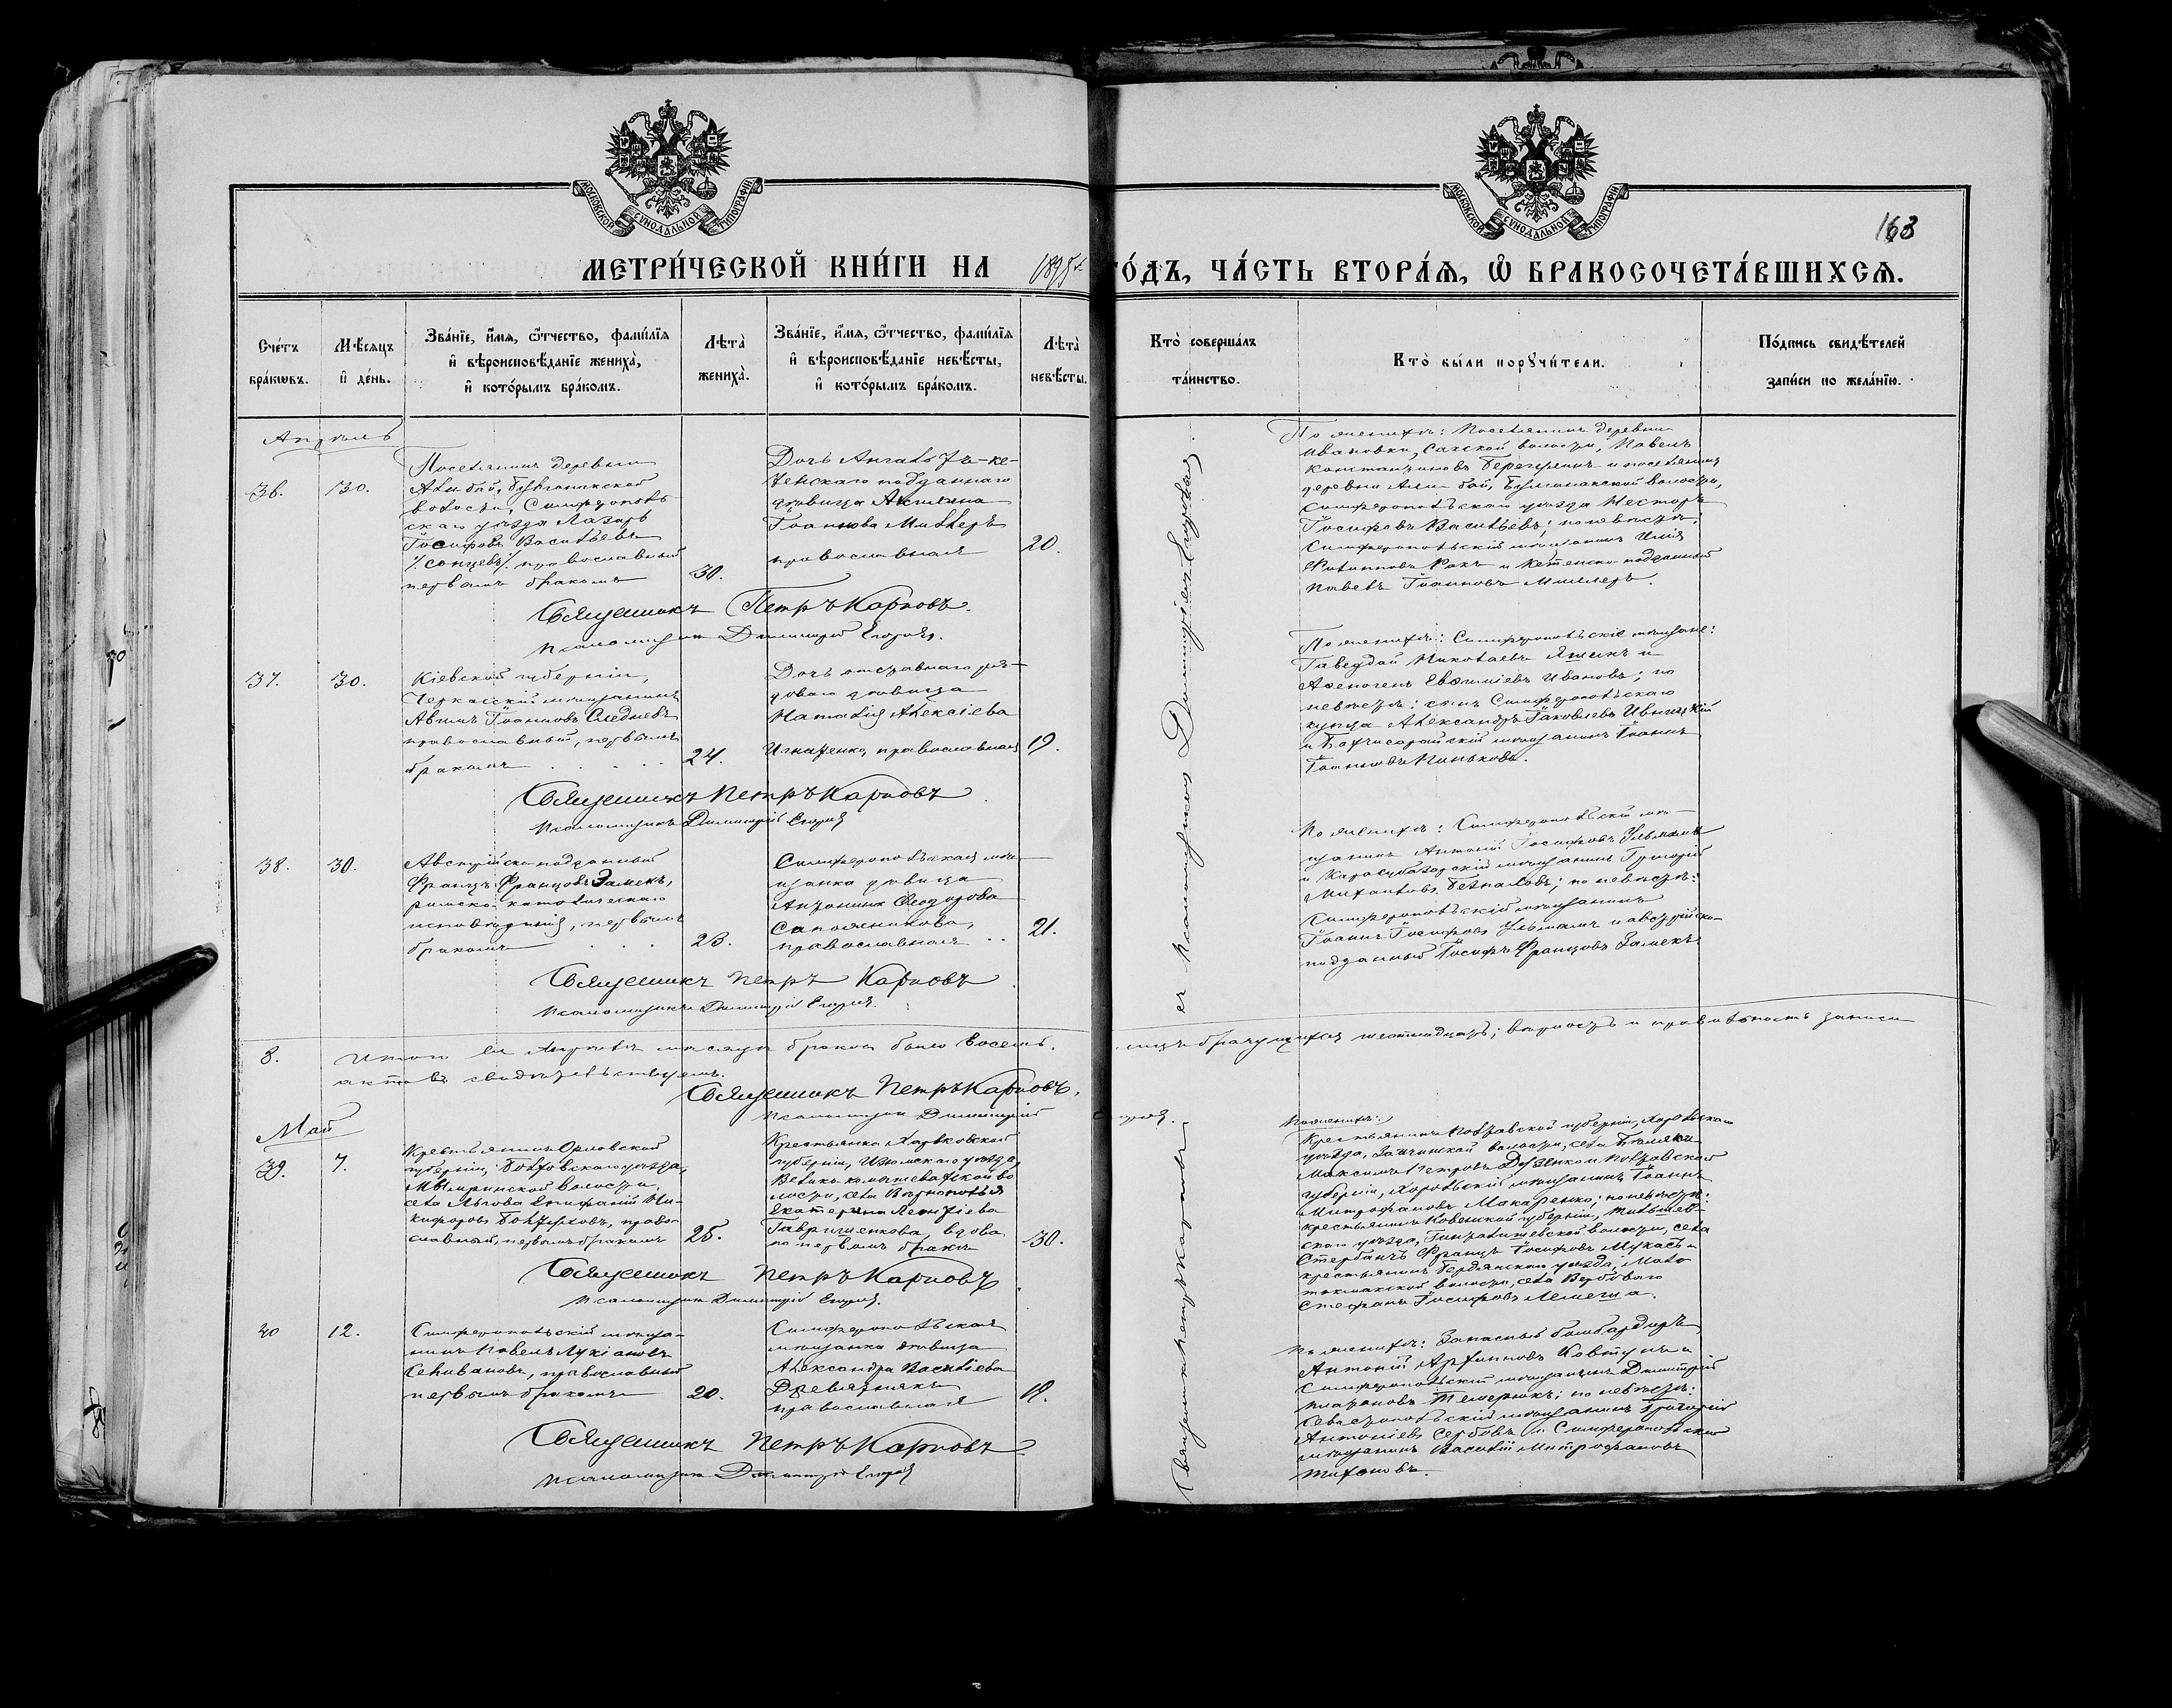 МОСКОВСКОЙ СѴНОДАЛЬНОЙ ТИПОГРАФІИ
МОСКОВСКОЙ СѴНОДАЛЬНОЙ ТИПОГРАФІИ
163
МЕТРИ́ЧЕСКОЙ КНИ́ГИ НА ГО́ДЪ, ЧА́СТЬ ВТОРА́Я, Ѿ БРАКОСОЧЕТА́ВШИХСЯ.
Сче́тъ бра́кѡвъ.
Мѣ́сяцъ и҆ де́нь.
Зва́нїе, и҆́мя, ѻ҆́тчество, фами́лїя и҆ вѣроисповѣ́данїе жениха̀, и҆ кото́рымъ бра́комъ.
Лѣта̀ жениха̀.
Зва́нїе, и҆́мя, ѻ҆́тчество, фами́лїя и҆ вѣроисповѣ́данїе невѣ́сты, и҆ кото́рымъ бра́комъ.
Лѣта̀ невѣ́сты.
Кто̀ соверша́лъ та́инство.
Кто̀ бы́ли порꙋчи́тели.
По́дпись свидѣ́телей за́писи по жела́нїю.
Апрѣль
36.
30.
Поселянинъ деревни
Али бай, Булганакской
волости, Симферополь
скаго уѣзда Лазарь
Іосифовъ Васильевъ
православный
первымъ бракомъ
30.
Дочь
подданнаго
дѣвица
Іоаннова Миллеръ
православная
20.
По женихѣ: Поселянинъ деревни
Ивановки, Сакской волости, Павелъ
Константиновъ и поселянинъ
деревни Али бай, Булганакской волости,
Симферопольскаго уѣзда Несторъ
Іосифовъ Васильевъ; по невѣстѣ:
Симферопольскій мѣщанинъ Илія
подданный
Павелъ Іоанновъ Миллеръ.
Священникъ Петръ Карповъ.
Псаломщикъ Димитрій
37.
30.
Кіевской губерніи,
Черкасскій мѣщанинъ
Іоанновъ
православный, первымъ
бракомъ
24.
Дочь отставнаго ря-
доваго дѣвица
Наталія Алексіева
Игнатенко, православная
19.
По женихѣ: Симферопольскіе мѣщане:
Николаевъ и
Аѳиногенъ Евѳиміевъ Ивановъ; по
невѣстѣ: сынъ Симферопольскаго
купца Александръ Іаковлевъ
и Бахчисарайскій мѣщанинъ Іоаннъ
Іоанновъ Паньковъ.
Священникъ Петръ Карповъ
Псаломщикъ Димитрій
38.
30.
Австрійско-подданный
Францъ Францовъ Замекъ,
римско-католическаго
исповѣданія, первымъ
бракомъ
23.
Симферопольская мѣ-
щанка дѣвица
Антонина Ѳеодорова
Сапожникова,
православная
21.
По женихѣ: Симферопольскій мѣ-
щанинъ Антоній Іосифовъ Ульманъ
и Карасубазарскій мѣщанинъ Григорій
Михаиловъ Безпаловъ; по невѣстѣ:
Симферопольскій мѣщанинъ
Іоаннъ Іосифовъ Ульманъ и австрійско-
подданный Іосифъ Францовъ Замекъ.
Священникъ Петръ Карповъ
Псаломщикъ Димитрій
8.
Итого въ Апрѣлѣ мѣсяцѣ браковъ было восемь,
лицъ брачущихся шестнадцать; вѣрность и правильность записи
актовъ свидѣтельствуемъ.
Священникъ Петръ Карповъ,
Псаломщикъ Димитрій
Май
39.
7.
Крестьянинъ Орловской
губерніи, Болховскаго уѣзда,
волости,
села Льгова Епифаній Ни-
кифоровъ право-
славный, первымъ бракомъ
25.
Крестьянка Харьковской
губерніи, Изюмскаго уѣзда,
Велико-камышевахской во
лости, села Вѣрнополья
Екатерина Леонтіева
Гавришенкова, вдова
по первомъ бракѣ
30.
По женихѣ:
Крестьянинъ Полтавской губерніи, Хорольскаго
уѣзда, волости, села
Максимъ Петровъ и Полтавской
губерніи, Хорольскій мѣщанинъ Іоаннъ
Митрофановъ Макаренко; по невѣстѣ:
крестьянинъ Ковенской губерніи,
скаго уѣзда, волости, села
Францъ Іосифовъ и
крестьянинъ Бердянскаго уѣзда, Мало
токмакской волости, села Вербоваго
Стефанъ Іосифовъ Лемеша.
Священникъ Петръ Карповъ
Псаломщикъ Димитрій
40
12.
Симферопольскій мѣща-
нинъ Павелъ Лукіановъ
Селивановъ, православный
первымъ бракомъ
20.
Симферопольская
мѣщанка дѣвица
Александра Василіева
православная
18.
По женихѣ: Запасный бомбардиръ
Антоній Архиповъ Ковтунъ и
Симферопольскій мѣщанинъ Димитрій
по невѣстѣ:
Севастопольскій мѣщанинъ Григорій
Антоніевъ Сербовъ и Симферопольскій
мѣщанинъ Василій Митрофановъ
Тихоновъ.
Священникъ Петръ Карповъ
Псаломщикъ Димитрій
Священникъ Петръ Карповъ
съ псаломщикомъ Димитріемъ